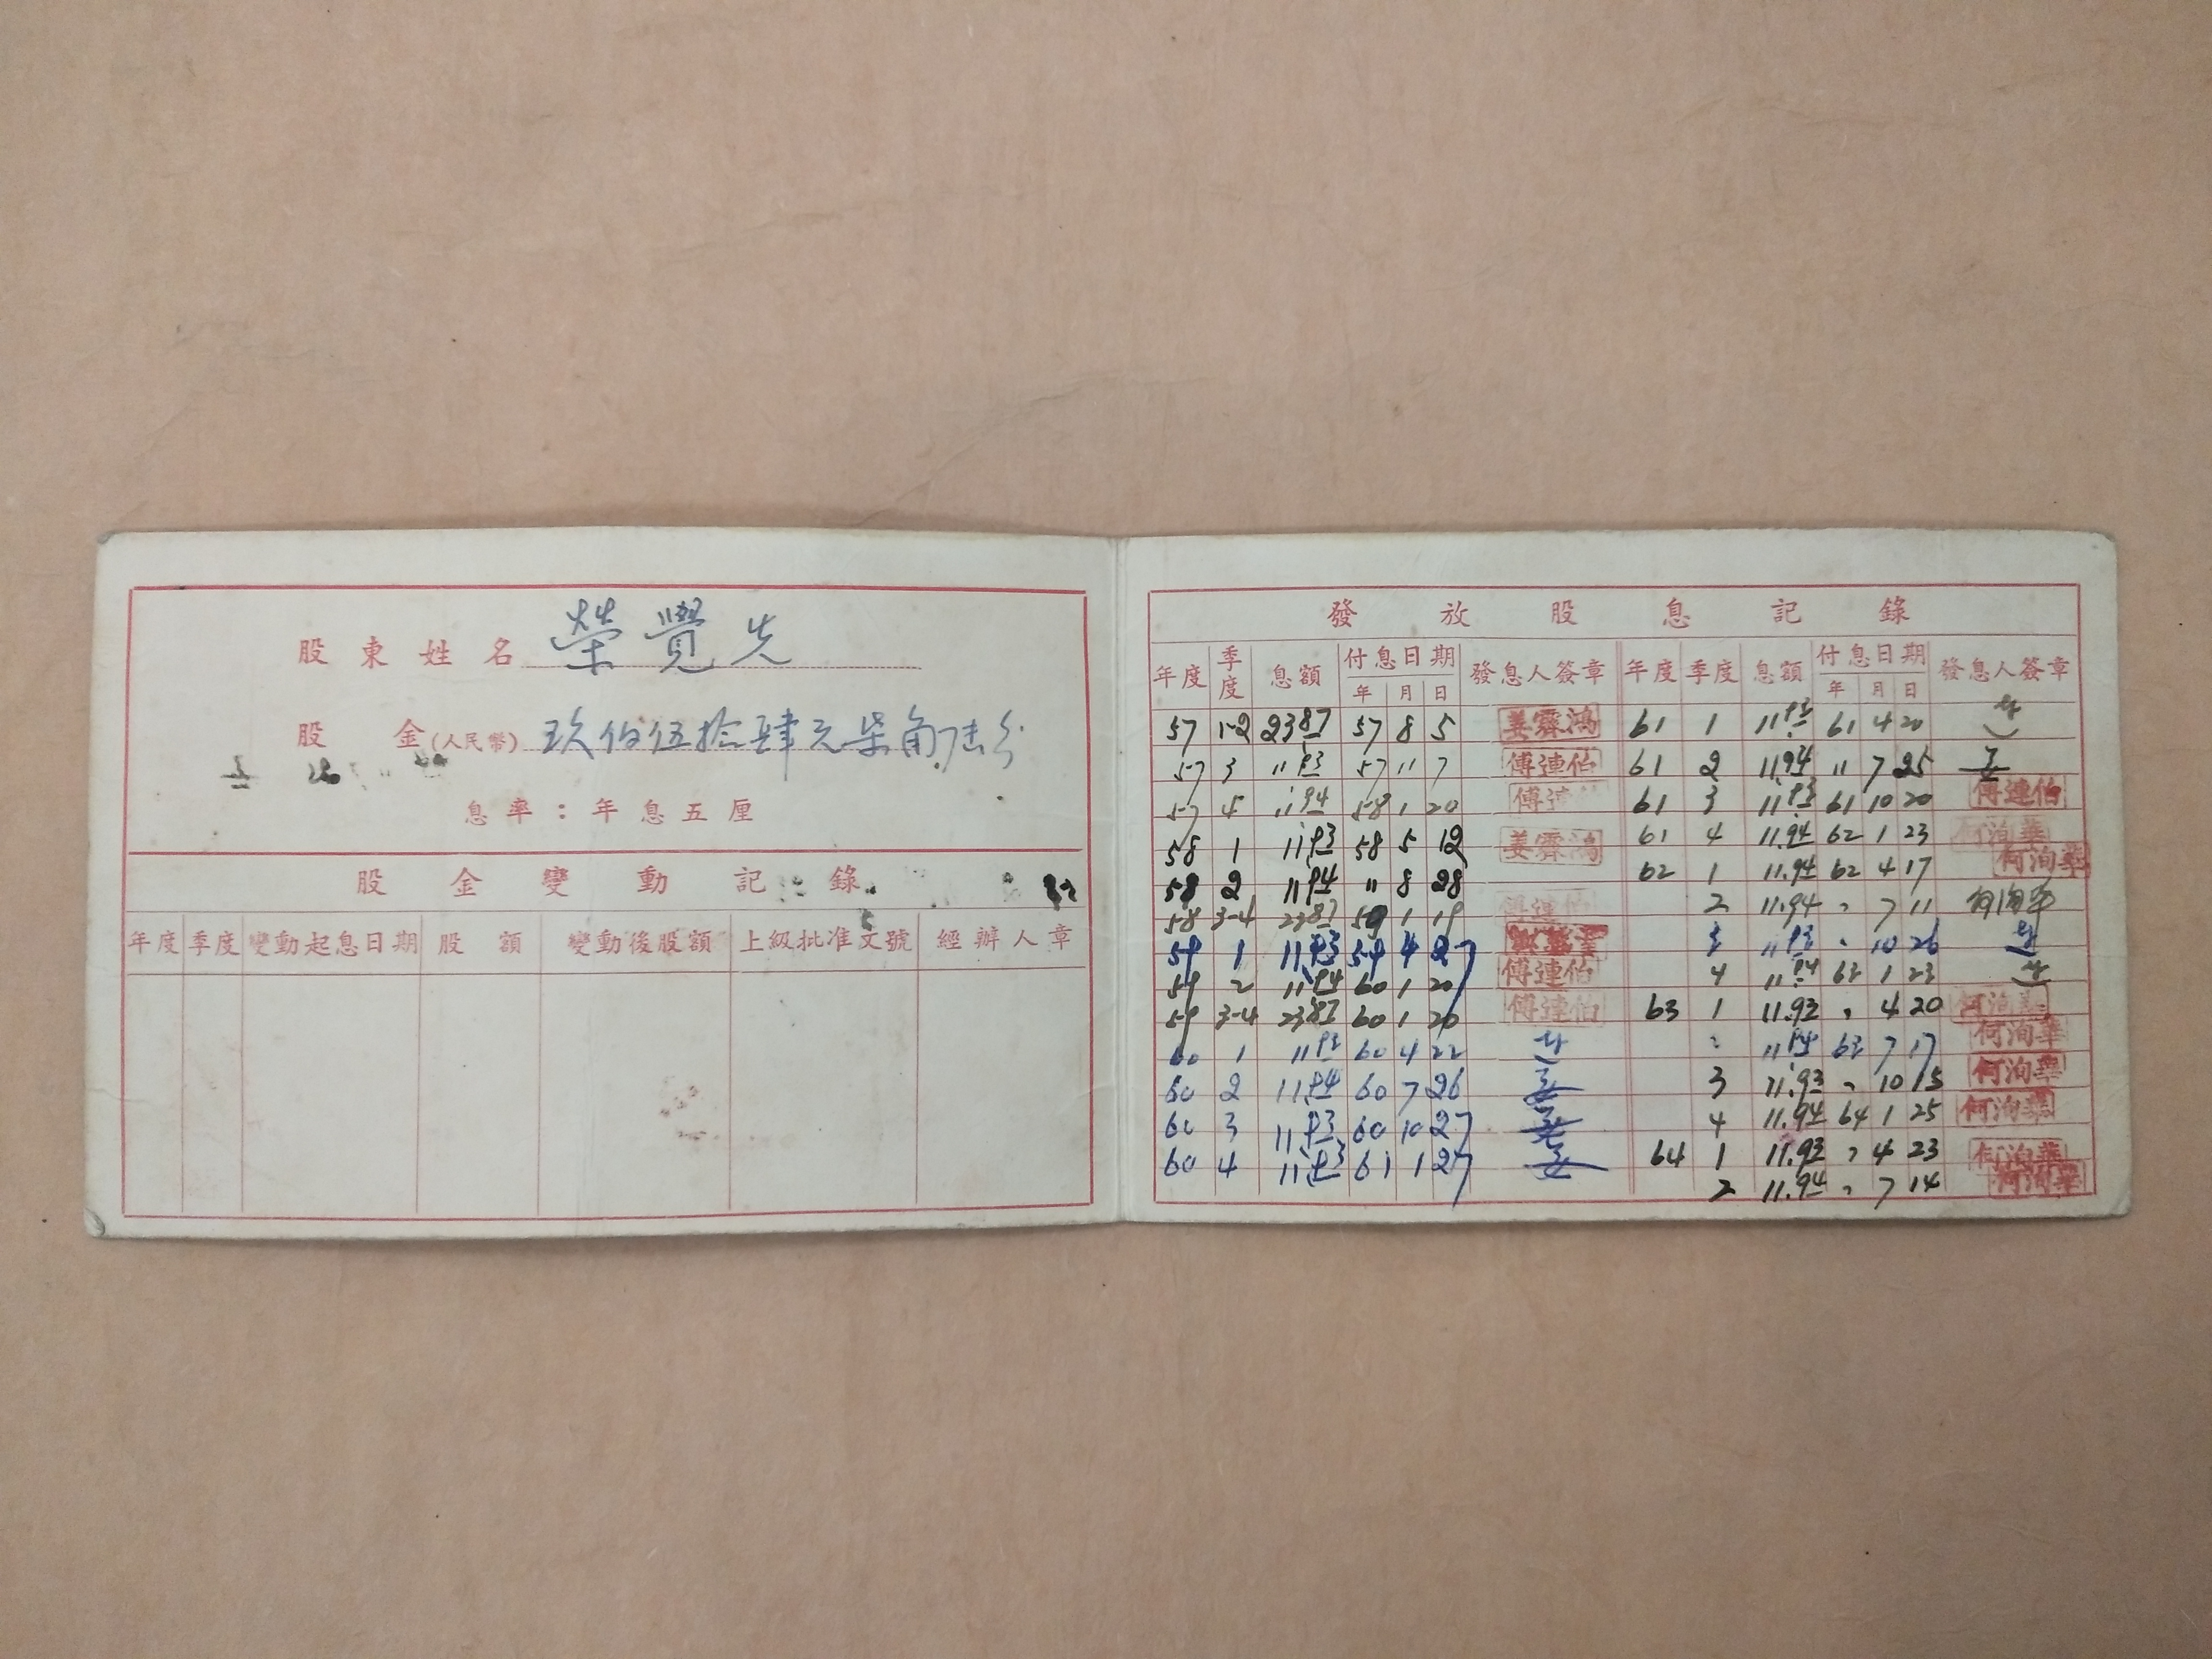 股東姓名 榮覺先
股金(人民幣) 玖伯伍拾肆元柒角陆分
息率：年息五厘
股金變動記錄
年度 季度 變動起息日期 股額 變動後股額 上級批准文號 經辦人章
發放股息記錄
年度 季度 息額 付息日期 發息人簽章 年度 季度 息額 付息日期 發息人簽章
年 月 日 年 月 日
57 1-2 23.87 57 8 5 姜霽鴻 61 1 11.93 61 4 20
57 3 11.93 57 11 7 傅連伯 61 2 11.94 〃 7 25
57 4 11.94 58 1 20 傅連 61 3 11.93 61 10 20 傅連伯
58 1 11.93 58 5 12 姜霽鴻 61 4 11.94 62 1 23 何洵華
58 2 11.94 〃 8 28 62 1 11.94 62 4 17 何洵華
58 3-4 23.87 59 1 19 傅連伯 2 11.94 〃 7 11 何洵華
59 1 11.93 59 4 27 3 11.93 〃 10 26
59 2 11.94 60 1 20 傅連伯 4 11.94 63 1 23
59 3-4 23.87 60 1 20 傅連伯 63 1 11.93 〃 4 20 何洵華
60 1 11.93 60 4 22 2 11.94 63 7 17 何洵華
60 2 11.94 60 7 26 3 11.93 〃 10 15 何洵華
60 3 11.93 60 10 27 4 11.94 64 1 25 何洵華
60 4 11.93 61 1 27 64 1 11.93 〃 4 23 何洵華
2 11.94 〃 7 14 何洵華